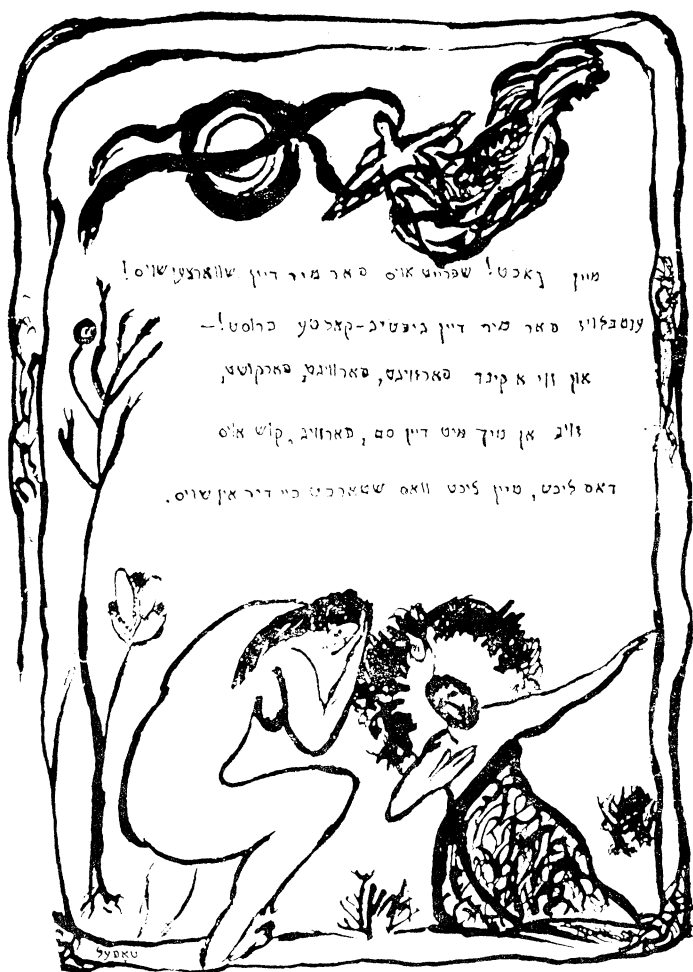 מיין נאכט! שפרייט אויס פאר מיר דיין שווארצע שויס!
ענטבלויז פאר מיר דיין גיפטיג-קאלטע ברוסט!—
און ווי א קינד פארזויגט, פארוויגט, פארקושט,
זויג אן מיך מיט דיין סם, פארוויג, קוש אויס
דאס ליכט, מיין ליכט וואס שטארבט ביי דיר אין שויס.